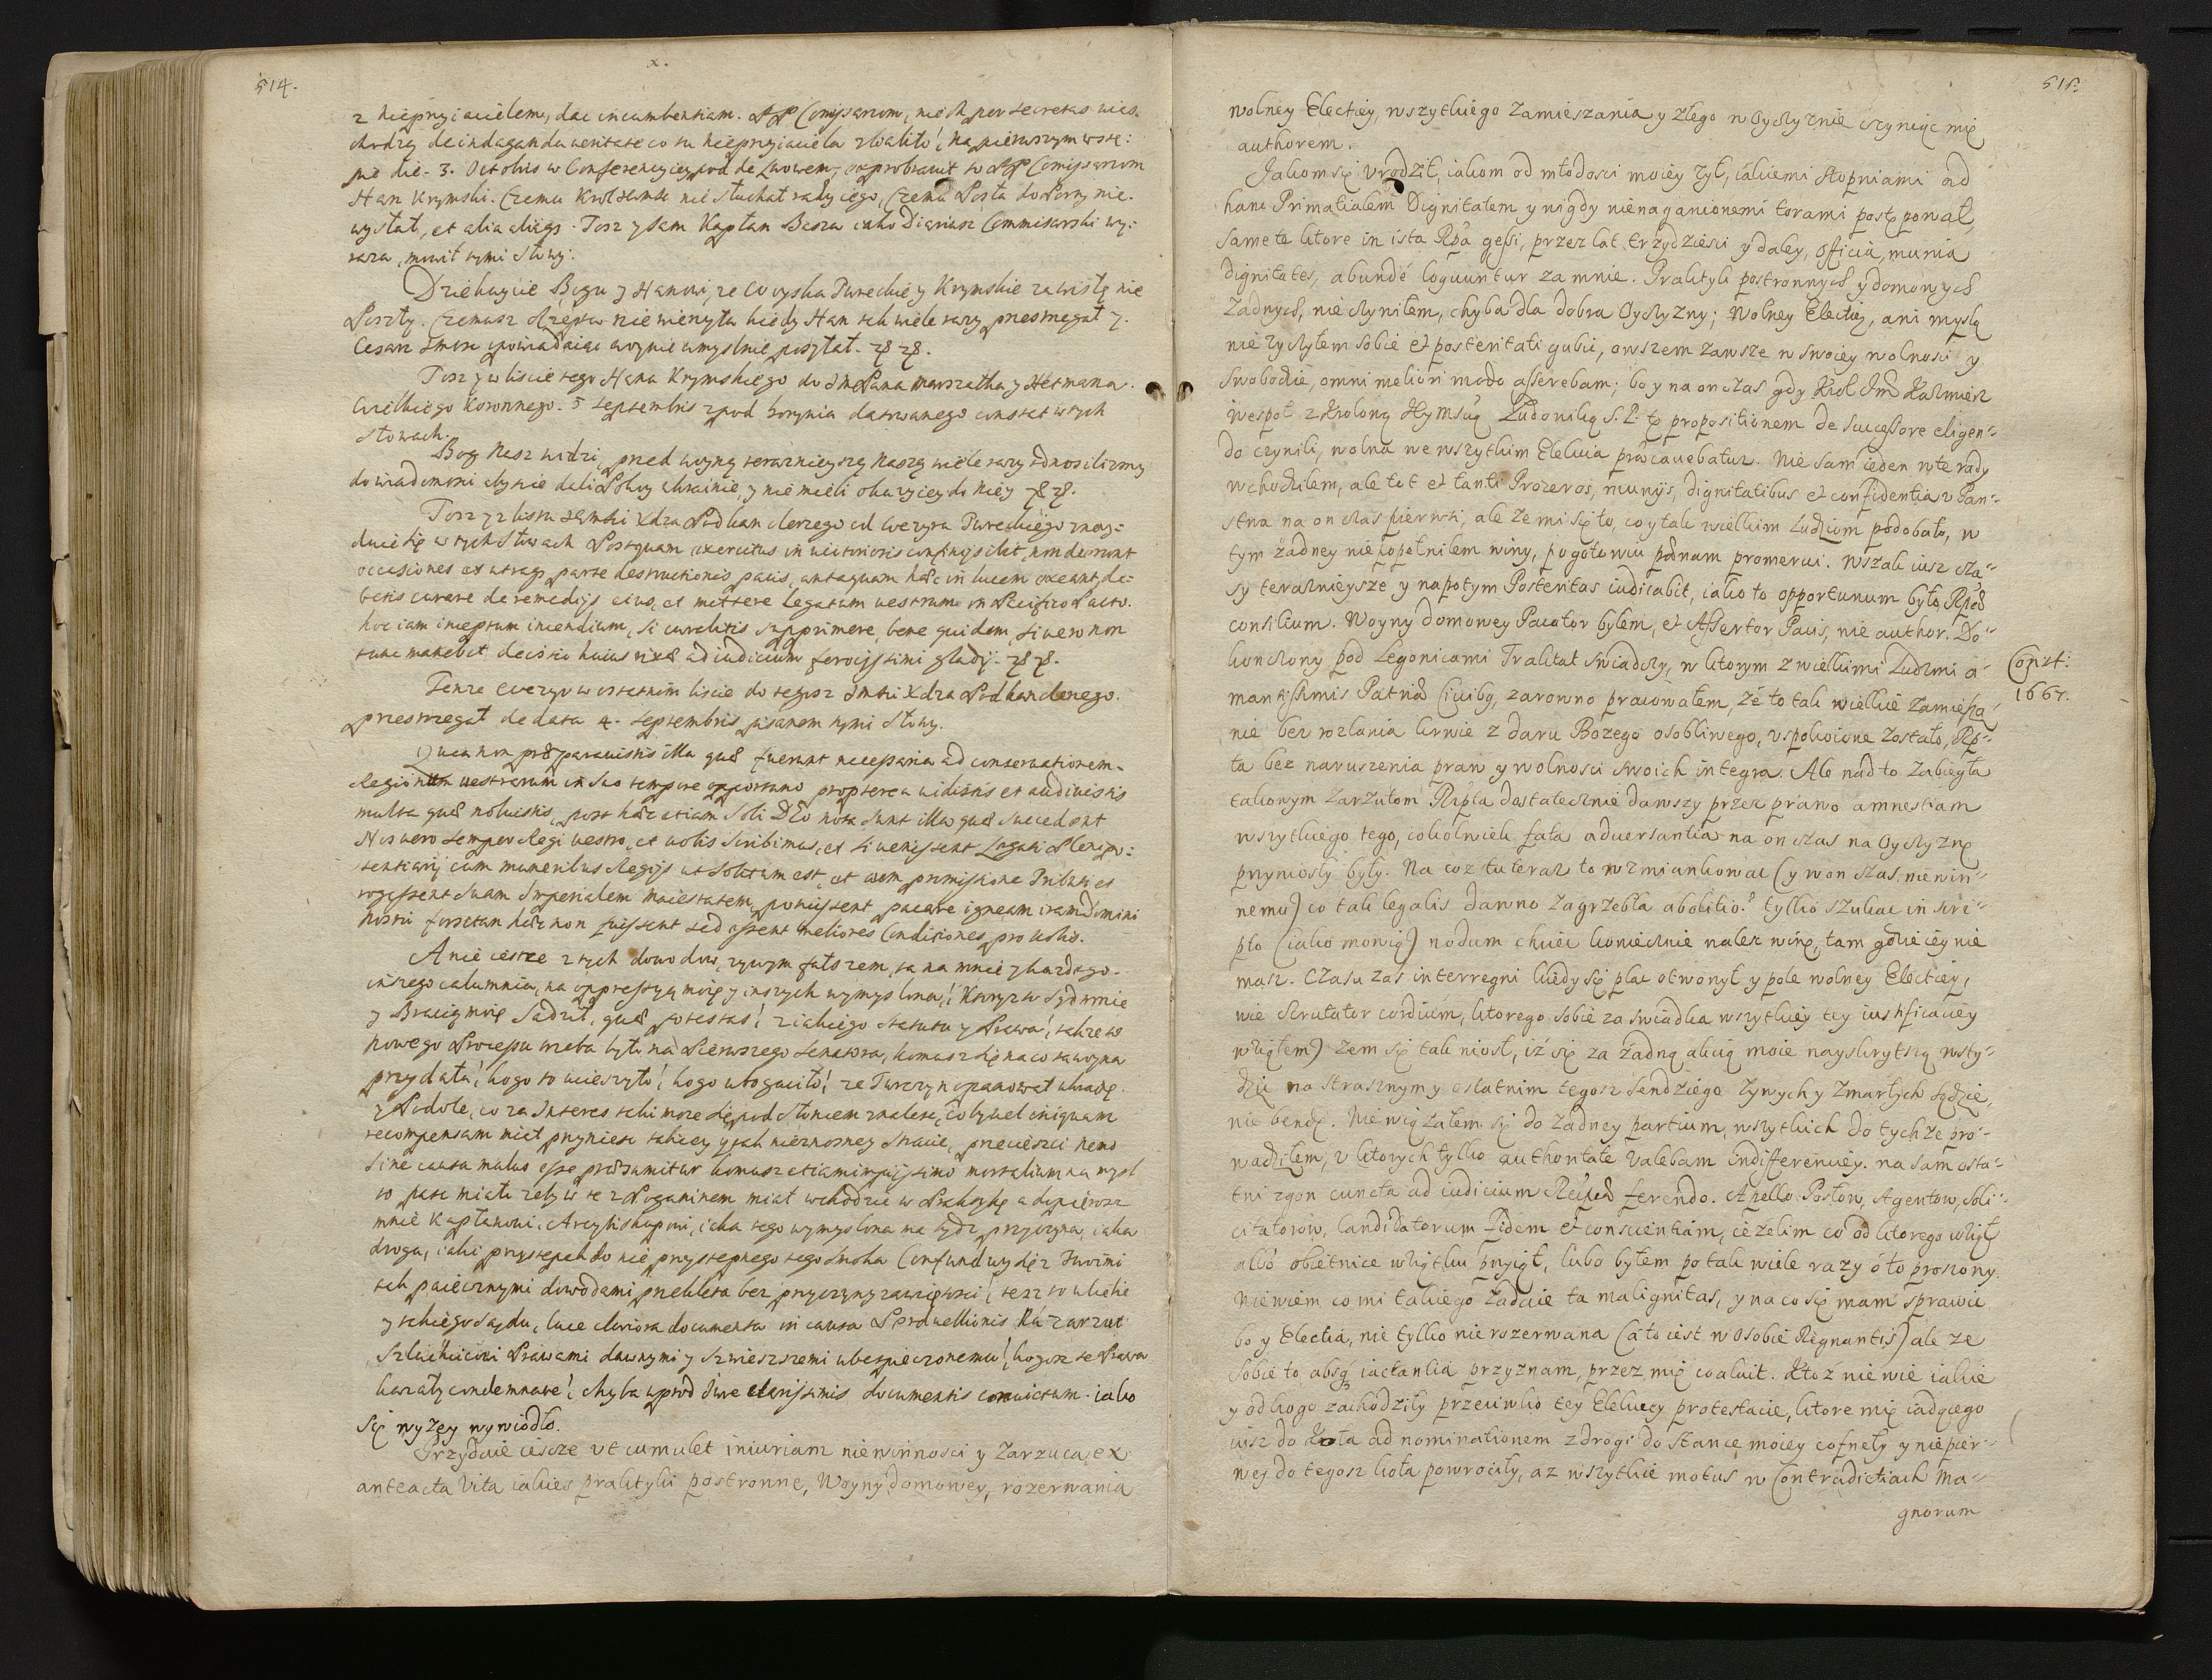 514.
x.
z nieprzyiacielem, dac incumbentiam. PP Comissarzom, niech per secretas wies.
chodzą de indaganda veritate co tu nieprzyiaciela zwabiło! na pierwszym wstę:
pie die 3. Octobris w Conferencyiey pod de Lwowem, exprobrauit to PP Comissarzom
Han Krymski. Czemu Krol Jemsc nie słuchał rady iego, Czemu Posła do Porty nie.
wysłał, et alia aliaqs. Toż y sam Kapłan Basza iako Diariusz Commissarski wy:
raza, mowił tymi słowy:
Dziekuycie Bogu y Hanowi, ze woyska Tureckie y Krymskie za wisłę nie
Poszły. Czemusz Rzepta nie wierzyła kiedy Han tak wiele razy przestrzegał y.
Cesarz Jmsc opowiadaiąc woynie umyslnie posyłał. &&.
Tosz y w liscie tego Hana Krymskiego do Jm Pana Marszałka y Hetmana.
Wielkiego Koronnego. 5 Septembris z pod Horynia datowanego constat w tych
słowach.
Bog Nasz widzi, przed woyną teraznieyszą Naszą wiele razy odnosilizmy
do wiadomosci abyscie dali Pokoy Ukrainie, y nie mieli okazyiey do Niey &&.
Tosz y z listu Jemsci Xdza Podkanclerzego od Wezyra Tureckiego znay-
duie się w tych słowach Postquam exercitus in viciniores confinijs erit, non deerunt
occasiones ex utraq parte destructionis pacis, antequam haec in lucem exeant, de:
betis curare de remedijs eius, et mittere legatum vestrum in Pacifico Pacto.
hoc iam inceptum incendium, si curabitis supprimere, bene quidem, si vero non
tunc manebit decisio huius rixae ad iudicium ferocissimi gladij. &&.
Tenze Wezyr w ostatnim liscie do tegosz Jmsci Xdza Podkanclerzego.
przestrzegał de data 4. Septembris pisanem tymi słowy.
Quea non praeparavistis illa quae fuerunt necessaria ad conservationem.
Regionum vestrarum in suo tempore opportuno propterea vidistis et audivistis
multa quae noluistis, post haec etiam soli DEO nota sunt illa quae succedent
Nos vero semper Regi vestro, et vobis scribimus, et si venissent Legati Plenipo:
tentiarij cum muneribus Regijs ut solitum est, et cum promissione Tributi et
rogassent suam Imperialem Maiestatem, potuissent pacare igneam iram domini
nostri forsitan haec non fuissent sed essent meliores Conditiones pro vobis.
A nie iescze z tych dowodow, zywym fałszem, ta na mnie y kazdego.
inszego calumnia, na oppressyą moię y inszych wymyslona! Ktoryz w Sędzmie
y Bracią moię Sadził, quae potestas! z iakiego statutu y Prawa! takze to
nowego Processu trzeba było na Pierwszego senatora, komusz się na co ta woyna
przydała! kogo to ucieszyło! kogo ubogaciło! ze Turczyn opanował Ukrainę.
y Podole, co za Interes taki moze się pod słoncem znalesc, coby vel iniquam
recompensam miał przyniesc takiey y jak nieznosney stracie, przecieszci nemo
sine causa malus esse praesumitur komusz etiam impijssimo mortalium na mysl
to pasc miało zeby to te z Poganinem miał wchodzic w Praktykę a dopierosz
mnie Kapłanowi, Arcybiskupowi, iaka tego wymyslona ma bydz przyczyna, iaka
droga, iaki przystępek do nie przystępnego tego smoka Confunduy się z Twoimi
tak paięcznymi dowodami przeklęta bez przyczyny zawziętosci! tesz to wielkie
y takiego Sądu, luce clariora documenta in causa Perduellionis na zarzut
Szlachcicowi Prawami dawnymi y swieszszemi ubezpieczonemu! kogosz te Prawa
kazały condemnare! chyba wprzod Jure clarissimis documentis convictum. iako
się wyzey wywiodło.
Przydaie iescze vt cumulet iniuriam niewinnosci y Zarzuca, ex
anteacta Vita iakies praktyki postronne, Woyny domowey, rozerwania
515.
wolney Electiey, wszytkiego Zamieszania y złego w Oyczyznie czyniąc mię
authorem.
Jakom się Vrodził, iakom od młodosci moiey żył, iakiemi stopniami ad
hanc Primatialem Dignitatem y nigdy nienaganionemi torami postępował,
same te ktore in ista Rpa gessi, przez lat trzydziesci y daley, Officia, munia
dignitates, abundé loquuntur za mnie. Praktyk postronnych y domowych
Żadnych, nie czyniłem, chyba dla dobra Oyczyzny; Wolney Electiey, ani myslą
nie życzyłem sobie et posteritati gubic, owszem zawsze w swoiey wolnosci y
Swobodzie, omni meliori modo asserebam; bo y na on czas gdy Krol Jmc Kazimierz
wespoł z Krolową Jeymscią Ludowiką S. P. tę propositionem de successore eligen-
do czynili, wolna we wszytkim Elekcia praecavebatur. Nie sam ieden w te rady
wchodziłem, ale tot et tanti Proceres, munijs, dignitatibus et confidentia v Pan-
stwa na on czas pierwsi, ale że mi się to, co y tak wielkim Ludziom podobało, w
tym żadney nie popełniłem winy, pogotowiu poenam promerui. Wszak iusz cza-
sy terasznieysze y napotym Posteritas iudicabit, iako to opportunum było Rpae
consilium. Woyny domowey Pacator byłem, et Assertor Pacis, nie author. Do-
konczony pod Legonicami Traktat swiadczy, w ktorym z wielkimi Ludzmi a-
mantissimis Patriae Civibq, zarowno pracowałem, że to tak wielkie zamiesza-
nie bez rozlania krwie z daru Bozego osobliwego, vspokoione zostało, Rp-
ta bez naruszenia praw y wolnosci swoich integra. Ale nad to Zabiegła
takowym Zarzutom Rzpta dostatecznie dawszy przez prawo amnestiam
wszytkiego tego, cokolwiek fata adversantia na on czas na Oyczyznę
przyniosły były. Na coz tu teraz to wzmiankowac (y won czas niewin-
nemu) co tak legalis dawno zagrzebła abolitio? tylko szukac in scri-
pto (iako mowią) nodum chciec koniecznie nalesc winę, tam gdzie iey nie
masz. Czasu zas interregni kiedy się plac otworzył y pole wolney Electiey,
wie Scrutator cordium, ktorego sobie za swiadka wszytkiey tey iustificaciey
wziąłem) żem się tak niosł, iż się za żadną akcią moie nayskrytszą wsty-
dzic na strasznym y ostatnim tegosz Sendziego Żywych y Zmarłych sądzie,
nie bendę. Nie wiązałem się do Żadney partium, wszytkich do tychze pro-
wadziłem, v ktorych tylko authoritate Valebam indifferenciey. na sam osta-
tni zgon cuncta ad iudicium Reipae ferendo. Apello Posłow, Agentow, Soli-
citatorow, Candidatorum Fidem et conscientiam, iezelim co od ktorego wziął
albo obietnice wziątku przyiął, lubo byłem po tak wiele razy o to proszony.
Nie wiem co mi takiego zadaie ta malignitas, y na co się mam sprawic
bo y Electia, nie tylko nie rozerwana (a to iest w osobie Regnantis) ale ze
sobie to absq iactantia przyznam, przez mię coaluit. Ktoż nie wie iakie
y od kogo zachodziły przeciwko tey Elekcey protestacie, ktore mię iadącego
iusz do Koła ad nominationem z drogi do stance moiey cofnęły y nie pier-
wey do tegosz koła powrociły, az wszytkie motus w Contradictiach ma-
gnorum
Const:
1667.